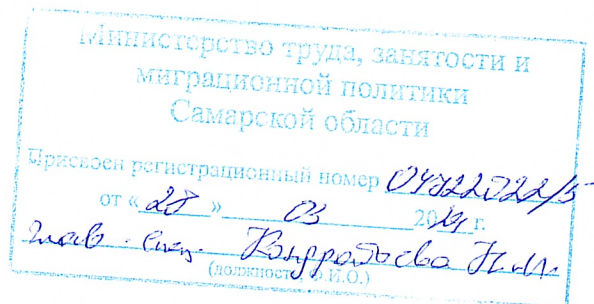 Министерство труда, занятости и
миграционной политики
Самарской области
Присвоен регистрационный номер
от « » 03 20 г.
глав. спец.
(должность, Ф.И.О.)